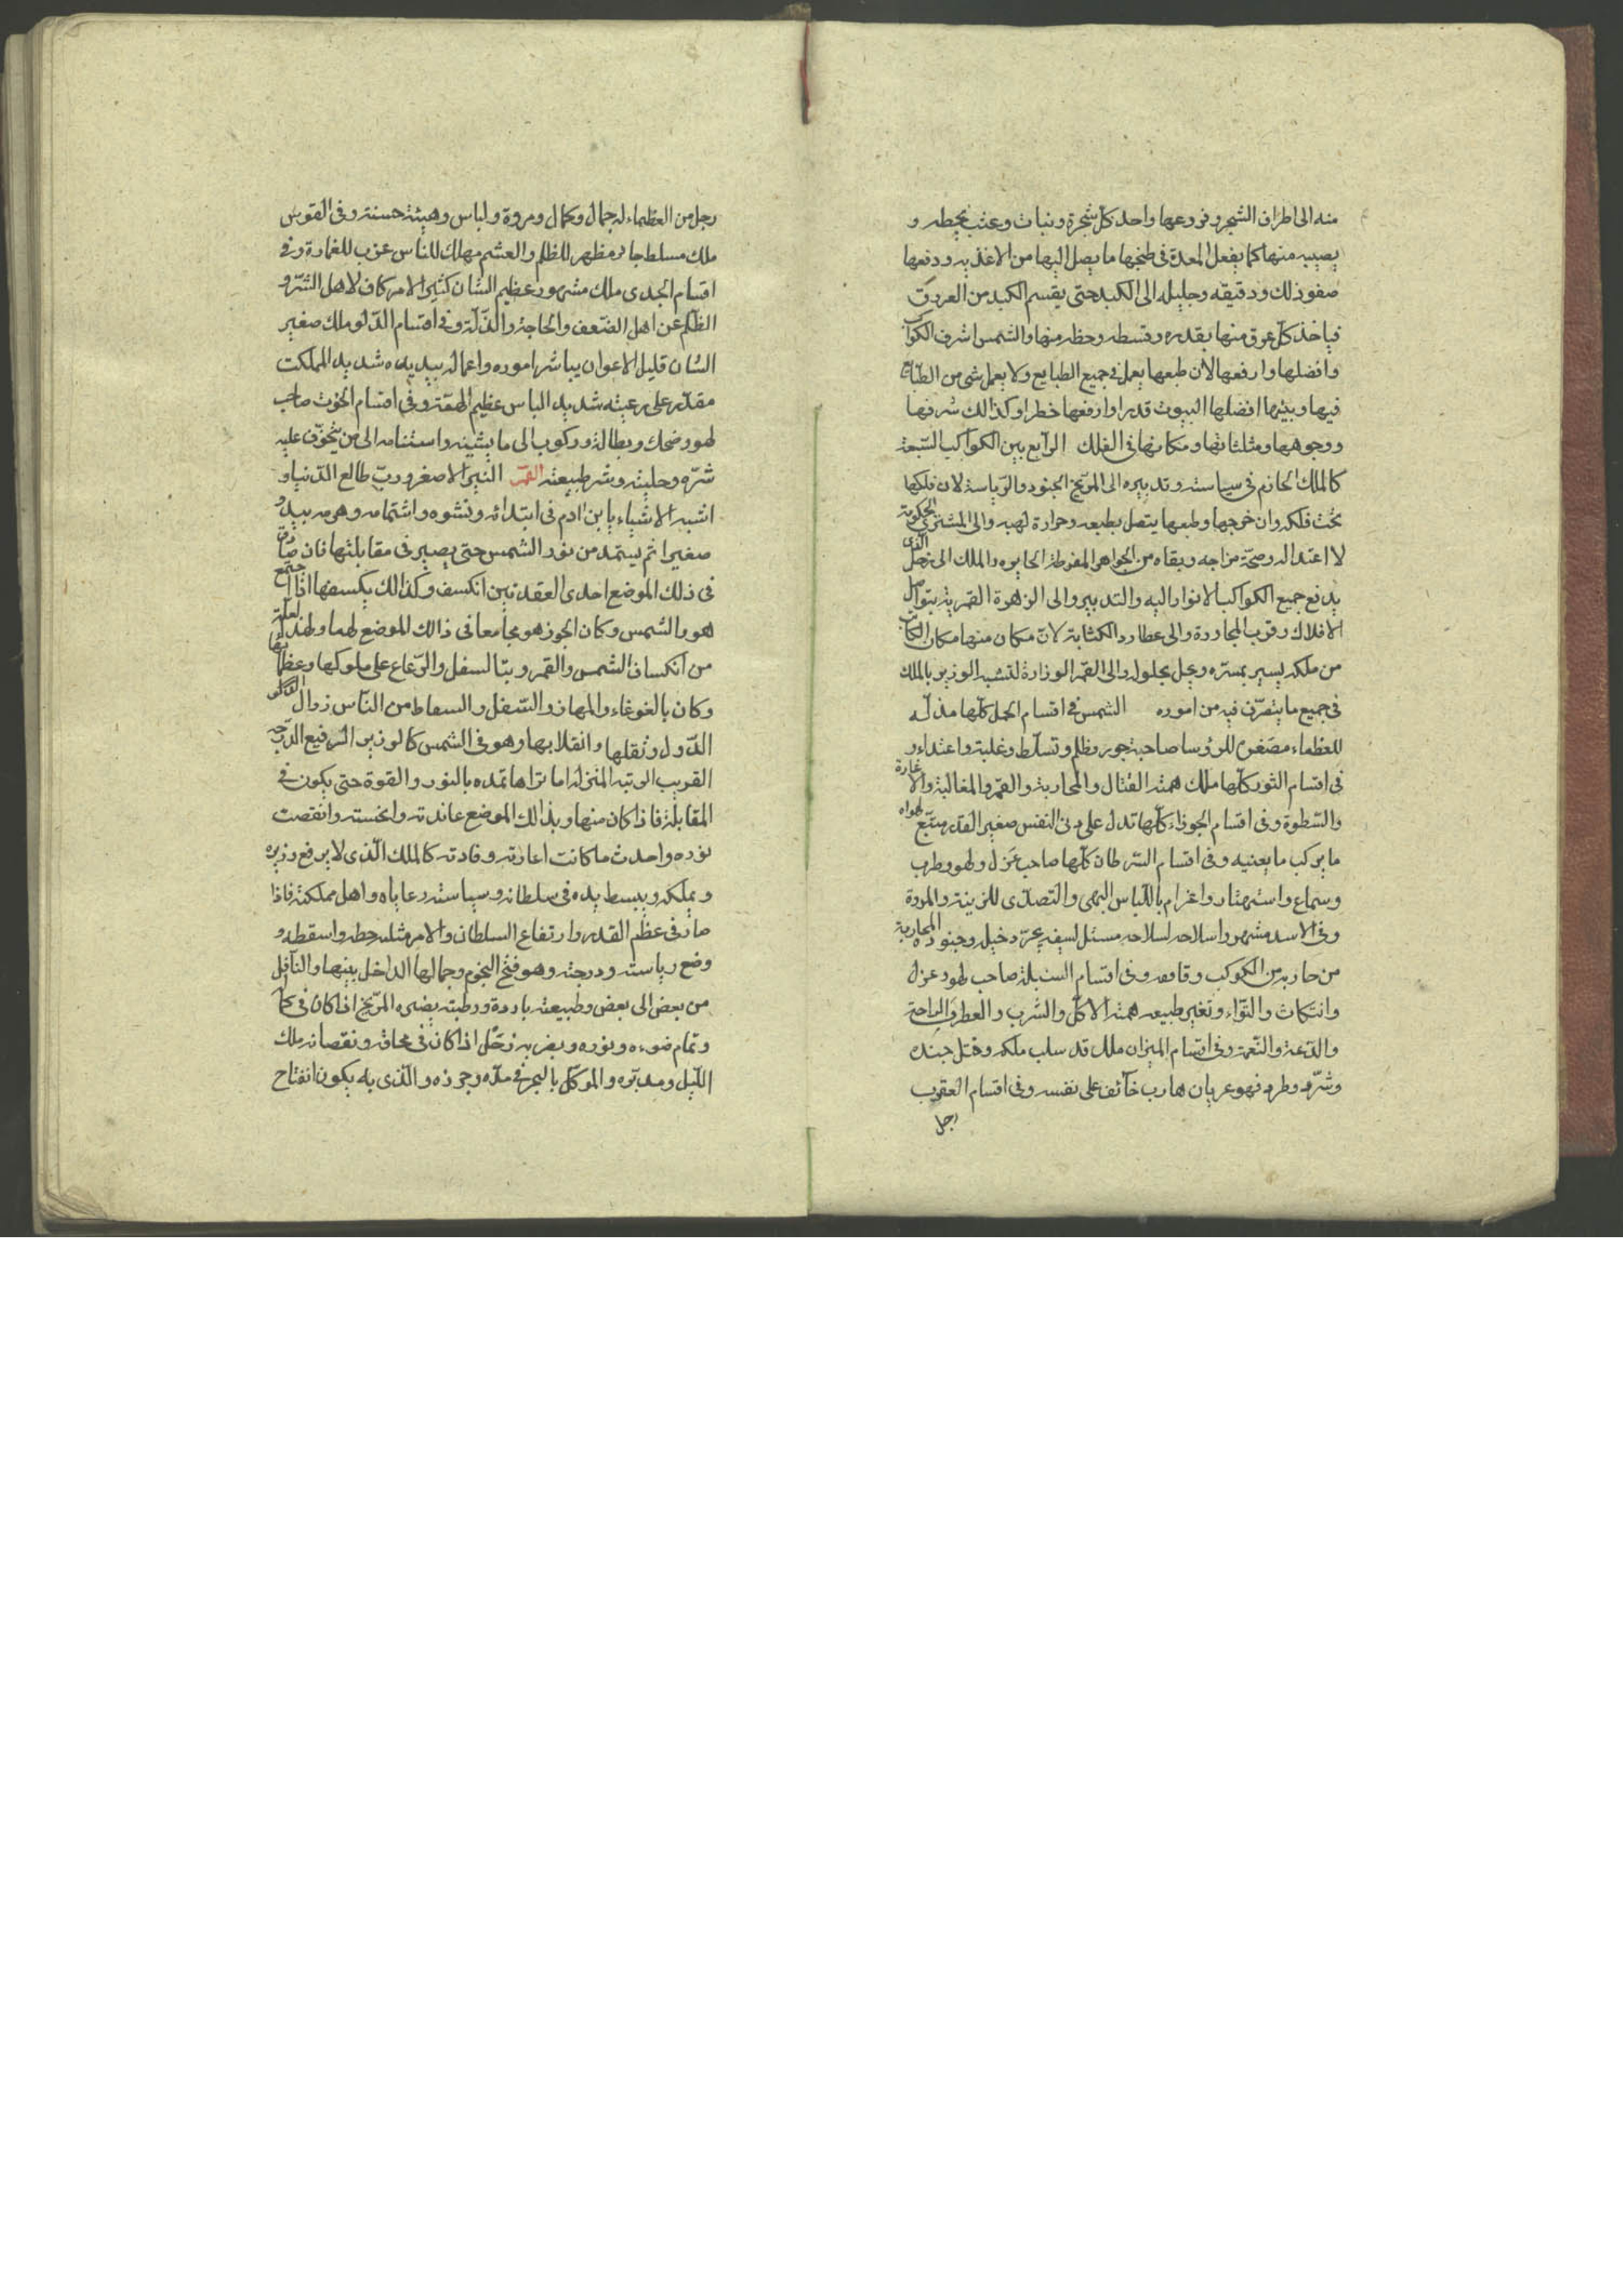 منه الى اطراف الشجر وفروعها واحد كل شجرة ونبات وعشب بحطه و
يصيبه منها كما يفعل المعدة فى طبخها ما يصل اليها من الاغذيه ودفعها
صفو ذلك ودقيقه وجليله الى الكبد حتى يقسم الكبد من العروق
فياخذ كل عرق منها بقدره وقسطه وحظه منها والشمس اشرف الكواكب
وافضلها وارفعها لان طبعها يعمل فى جميع الطبايع ولا يعمل شى من الطبائع
فيها وبيتها افضلها البيوت قدرا وارفعها خطرا وكذالك شرفها
ووجوهها ومثلثاتها ومكانها فى الفلك الرابع بين الكواكب السبعة
كالملك الحازم فى سياسته وتدبيره الى المريخ الجنود والرياسة لان فلكها
تحت فلكه وان خرجها وطبعها يتصل بطبعه وحرارة لهبه والى المشترى الحكومة
لا اعتداله وصحة مزاجه وبقاه من الجواهر المفرطة الجايره والملك الى زحل الذى
يدفع جميع الكواكب الانوار اليه والتدبير والى الزهرة القمرية بتواصل
الافلاك وقرب المجاورة والى عطارد الكتابة لان مكان منها مكان الكاتب
من ملكه يسير بمسره ويحل بحلوله والى القمر الوزارة لتشبه الوزير بالملك
فى جميع ما يتصرف فيه من اموره الشمس فى اقسام الحمل كلها مذله
للعظماء مصغر للرؤسا صاحبة جور وظلم وتسلط وغلبة واعتداء و
فى اقسام الثور كلها ملك همته القتال والمحاربة والقهر والمغالبة والاغارة
والسطوة وفى اقسام الجوزاء كلها تدل على دنى النفس صغير القدر متبع لهواه
ما يركب ما يعنيه وفى اقسام السرطان كلها صاحب غزل ولهو وطرب
وسماع واستهتار واغرام باللباس البهى والتصدى للزينة والمودة
وفى الاسد مشهور اسلاحه لسلاحه مستل لسيفه يجرد خيله وجنوده المحاربة
من حاربه من الكوكب وقاومه وفى اقسام السنبلة صاحب لهو وغزل
وانتكاث والتواء وتغير طبيعه همته الاكل والشرب والعطر والراحة
والدعة والنعمة وفى اقسام الميزان ملك قد سلب ملكه وقتل جنده
وشرد وطرد فهو عريان هارب خائف على نفسه وفى اقسام العقرب
رجل
رجل من العظماء له جمال وكمال ومروة ولباس وهيئة حسنة وفى القوس
ملك مسلط جائر مظهر للظلم والعشم مهلك للناس عزب للغارة وفى
اقسام الجدى ملك مشهور عظيم الشان كثير الامر كاف لاهل الشر و
الظلم عن اهل الضعف والحاجة والذلة وفى اقسام الدلو ملك صغير
الشان قليل الاعوان يباشر اموره واعماله بيديه شديد المملكت
مقدر على رعيته شديد الباس عظيم الهمة وفى اقسام الحوت صاحب
لهو وضحك وبطالة وركوب الى ما يشينه واستنامه الى من يتخوف عليه
شره وحليته وشر طبيعته القمر النير الاصغر ورب طالع الدنيا و
اشبه الاشياء بابن ادم فى ابتدائه ونشوه واشتمامه وهرمه يبدو
صغيرا ثم يستمد من نور الشمس حتى يصير فى مقابلتها فان صادف
فى ذلك الموضع احدى العقدتين انكسف وكذالك يكسفها اذا اجتمع
هو والشمس وكان الجوزهر مجامعا فى ذالك الموضع لهما ولهذا لعلة
من انكساف الشمس والقمر وبتا لسفل والرعاع على ملوكها وعظمائها
وكان بالغوغاء والمهان والسفل والسقاط من الناس زوال
الدول وثقلها وانقلابها وهو فى الشمس كالوزير الرفيع الدرجة
القريب الرتبة المنزله اما تراها تمده بالنور والقوة حتى يكون فى
المقابلة فاذا كان منها وبذالك الموضع عاندته وانحسته وانقصت
نوره واحدث ما كانت اعارته وفادته كالملك الذى لا يرفع وزيره
ويملكه ويبسط يده فى سلطانه وسياسته رعاياه واهل مملكته فاذا
صار فى عظم القدر وارتفاع السلطان والامر مثله حطه واسقطه و
وضع رياسته ودرجته وهو فتح النجوم وجمالها الداخل بينها والناقل
من بعض الى بعض وطبيعته باردة ورطبته يضره المريخ اذا كان فى
وتمام ضوءه ونوره ويضر به زحل اذا كان فى محاقه ونقصانه ملك
الليل ومدبره والموكل بالبحر فى مده وجرزه والذى به يكون انفتاح